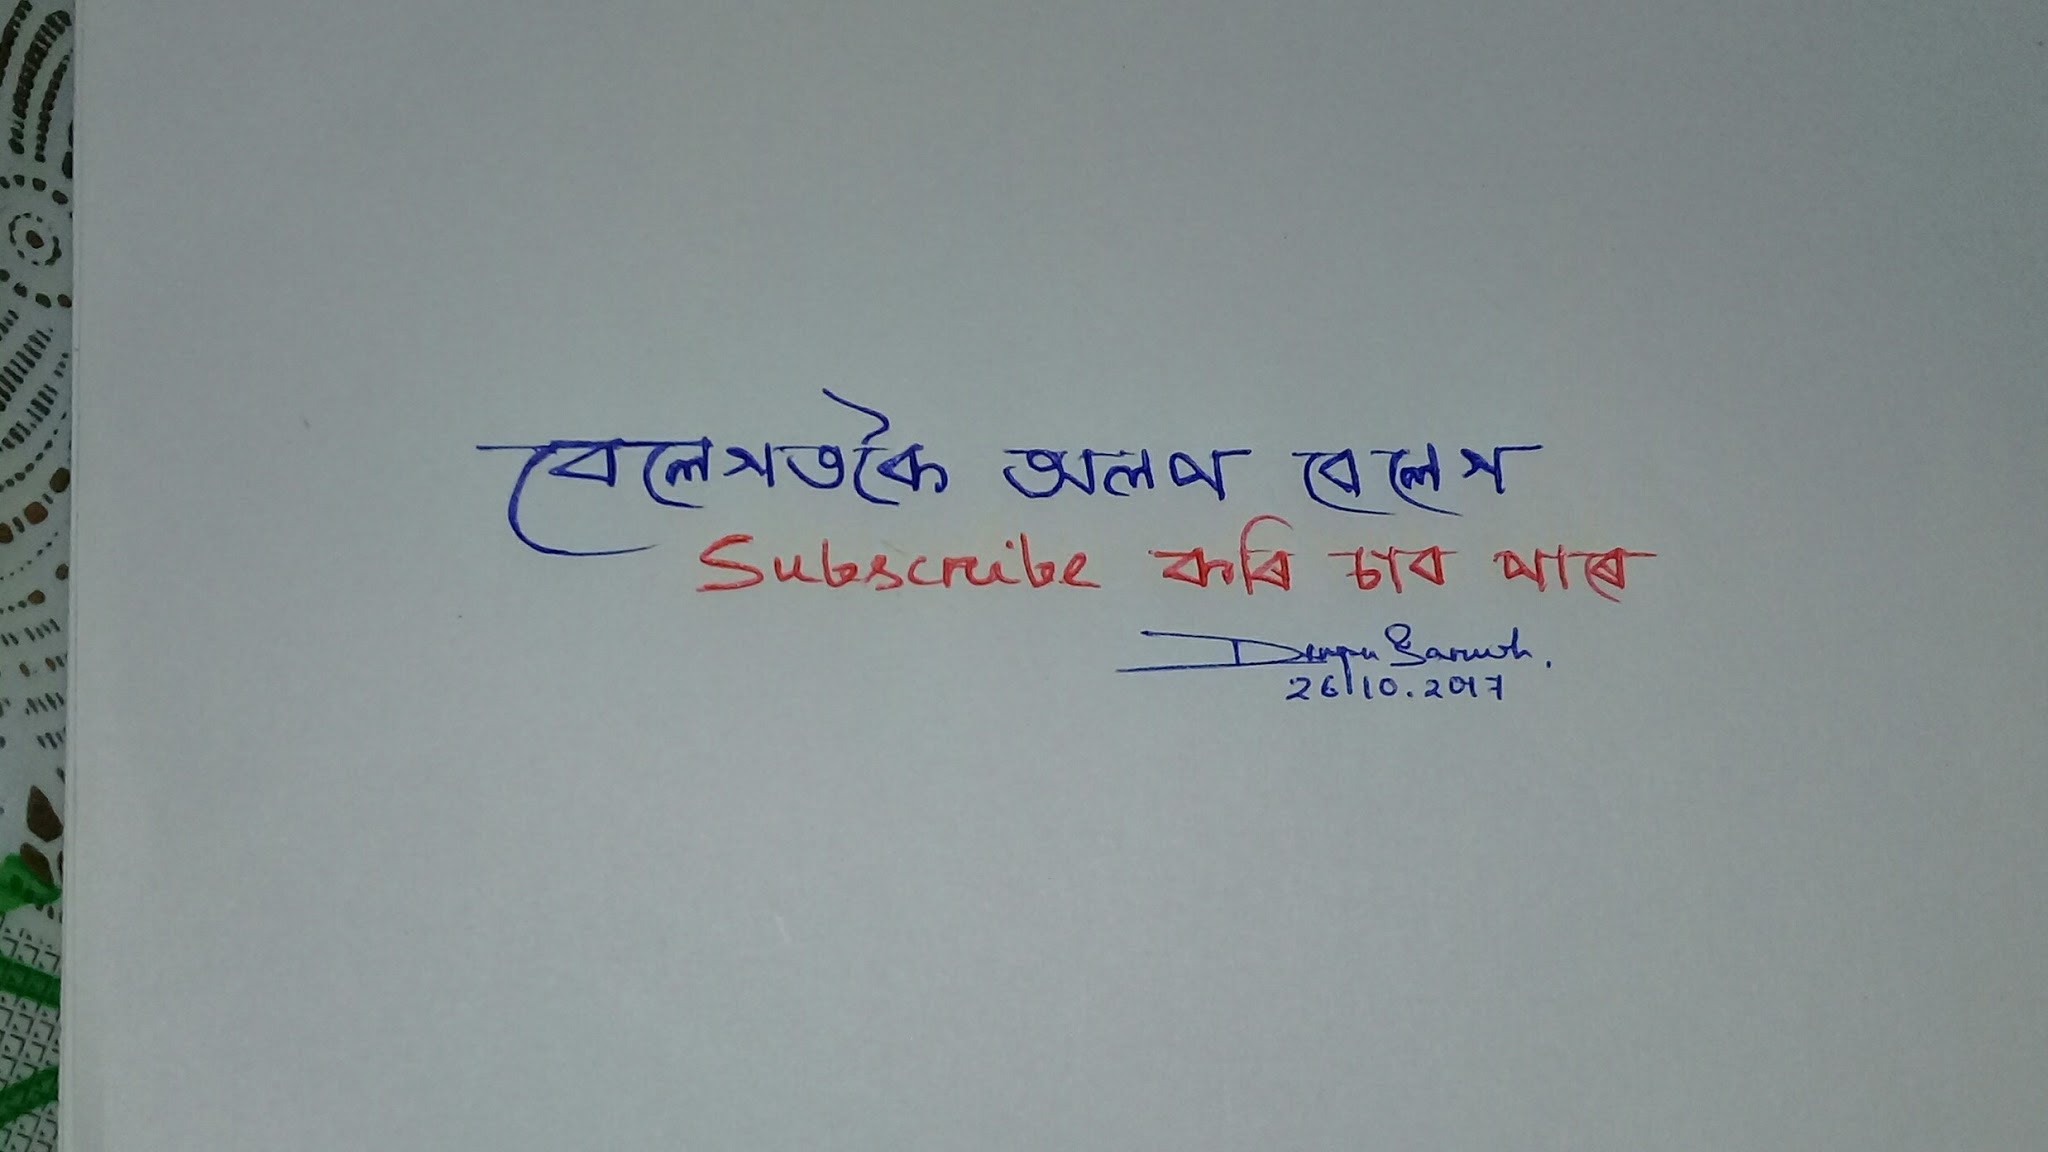 বেলেগতকৈ অলপ বেলেগ
Subscribe কৰি চাব পাৰে
Baruah.
26/10.2017